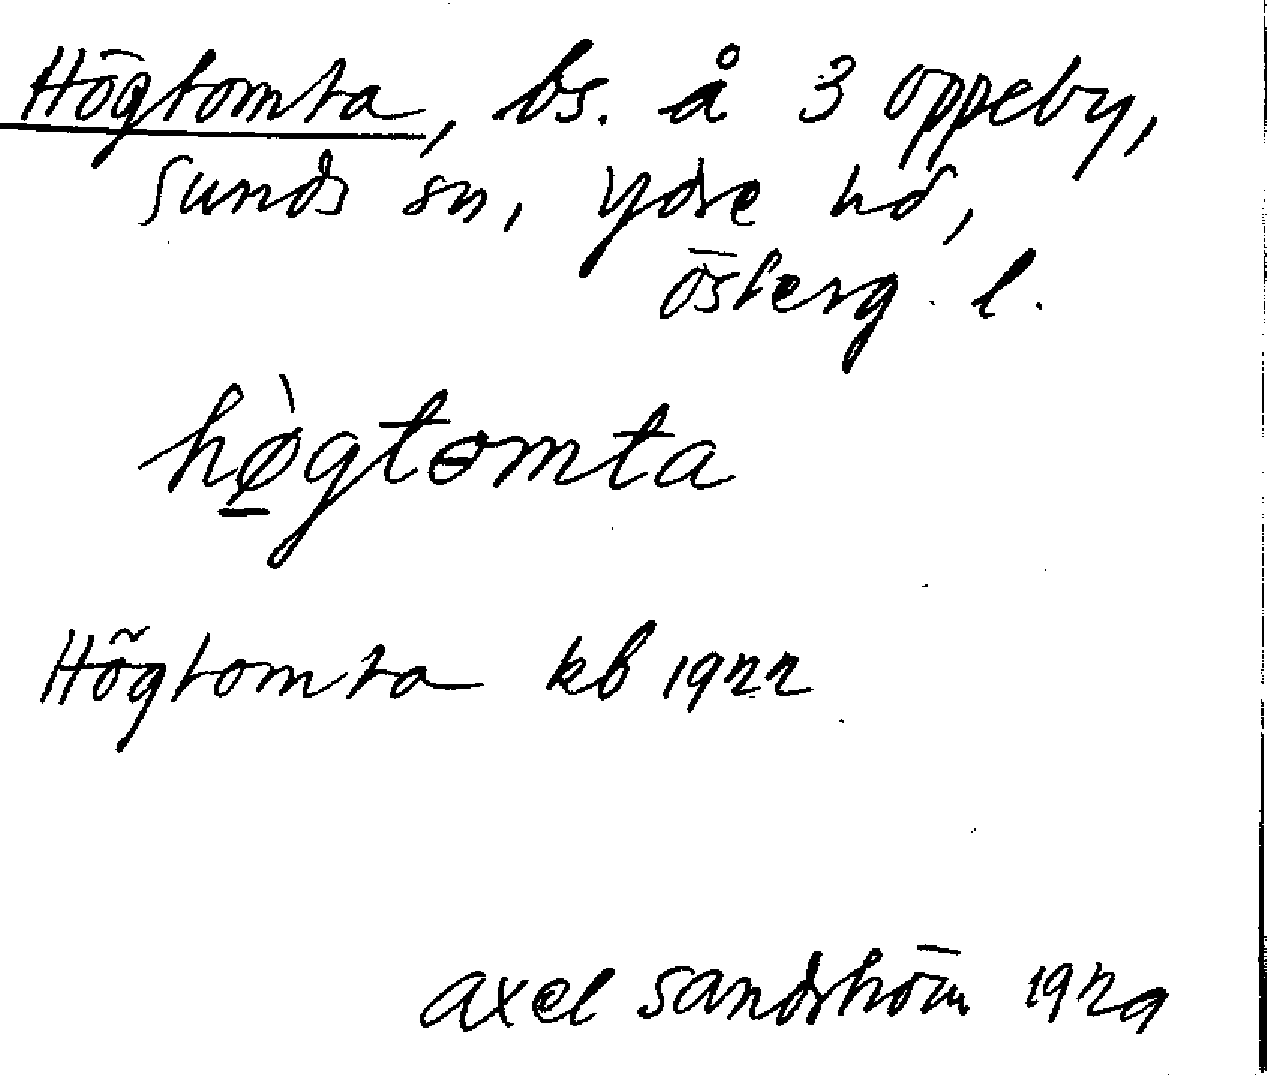 Högtomta, bs. å 3 Oppeby,
Sunds sn, Ydre hd,
Österg. l.
hø̱̀gtɵmta
Högtomta kb 1922
Axel Sandström 1929